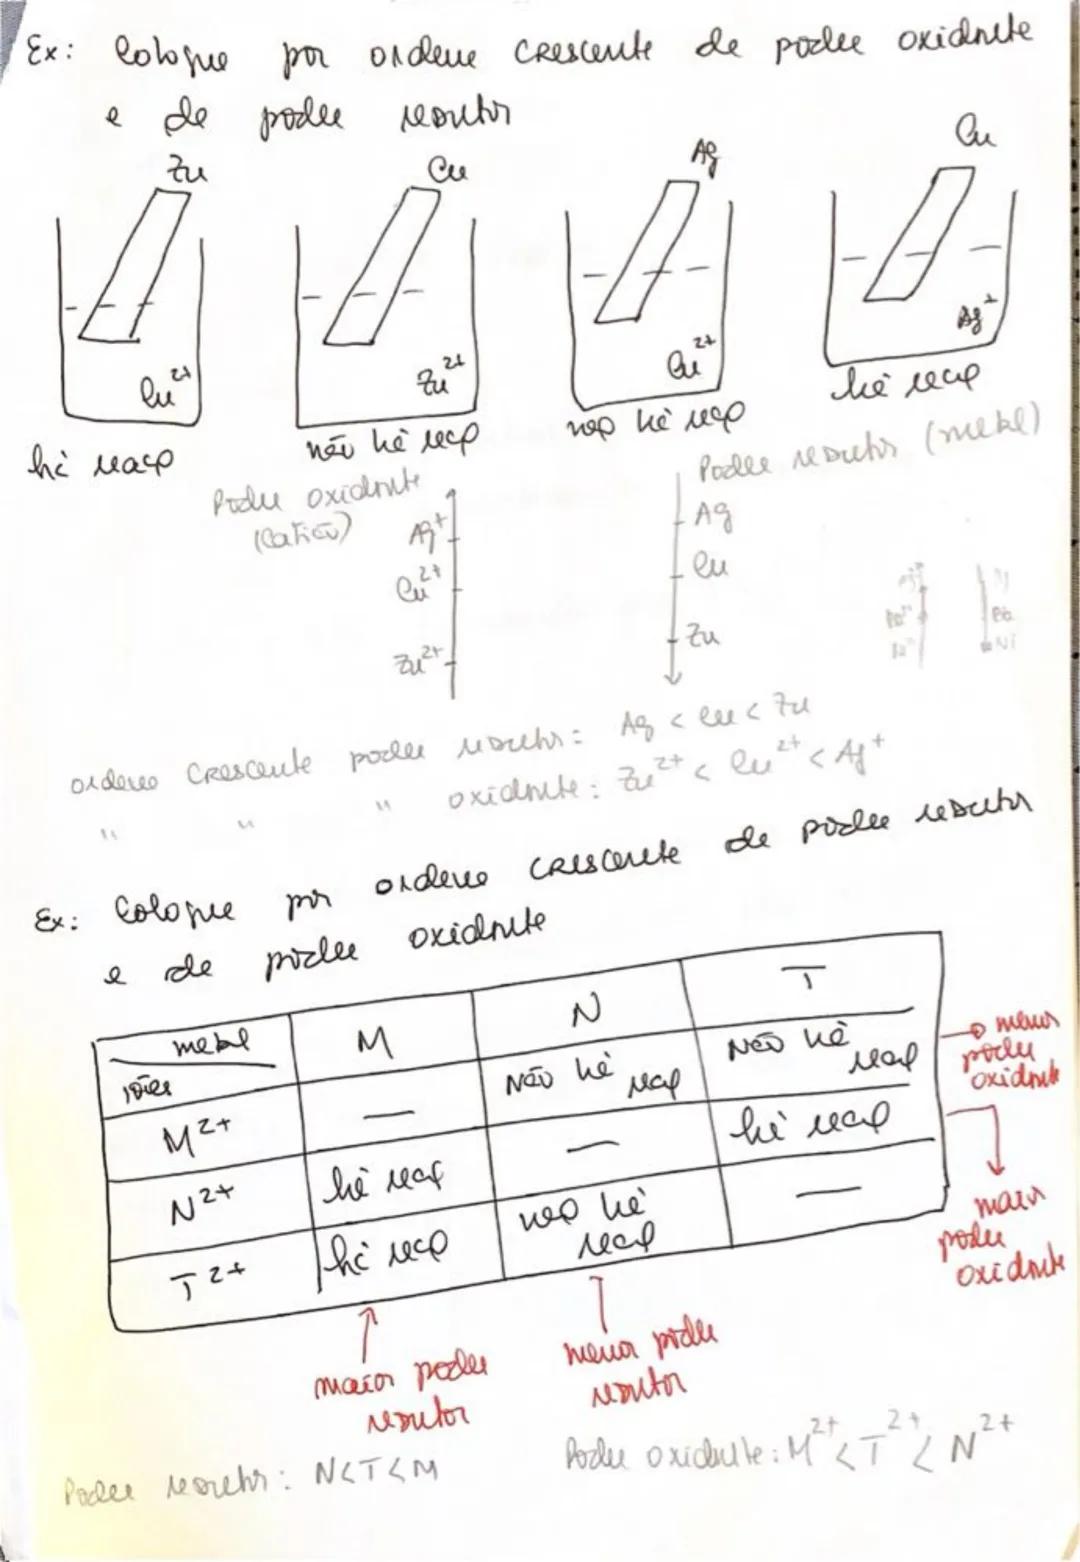 Ex: Coloque por ordem crescente de poder oxidante
e de poder redutor
Zn
Cu
Ag
Cu
Cu2+
Zn2+
Cu2+
Ag+
há reaç
não há reaç
não há reaç
há reaç
Poder oxidante
(catião)
Ag+
Cu2+
Zn2+
Poder redutor (metal)
Ag
Cu
Zn
Pb
Ni
ordem crescente poder redutor: Ag < Cu < Zn
" " " oxidante: Zn2+ < Cu2+ < Ag+
Ex: Coloque por ordem crescente de poder redutor
e de poder oxidante
metal
iões
M
N
T
M2+
—
Não há reaç
Não há reaç
N2+
há reaç
—
há reaç
T2+
há reaç
não há reaç
—
menor poder oxidante
maior poder oxidante
maior poder redutor
menor poder redutor
Poder redutor: N<T<M
Poder oxidante: M2+ < T2+ < N2+